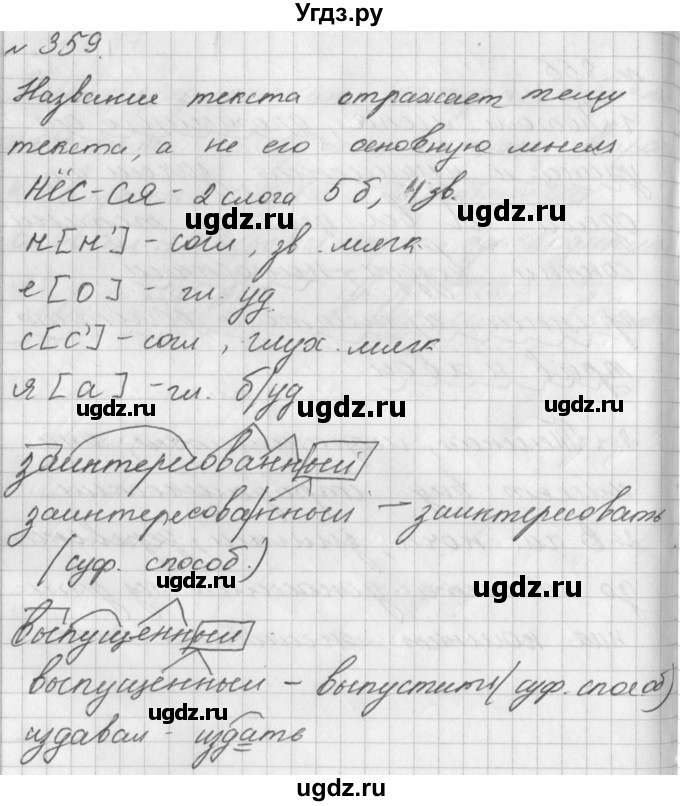 Угдз.ру
№ 359.
Название текста отражает тему
текста, а не его основную мысль
НЁС-СЯ - 2 слога 5 б, 4 зв.
ugdz.ru ugdz.ru
н [н'] - согл, зв. мягк.
е [о] - гл. уд.
ugdz.ru ugdz.ru
с [с'] - согл, глух. мягк
я [а] - гл. б/уд
ugdz.ru ugdz.ru ugdz.ru
заинтересованный
заинтересова/нный - заинтересовать
(суф. способ.)
ugdz.ru ugdz.ru
выпущенный
ugdz.ru
выпущенный - выпустить (суф. способ)
ugdz.ru ugdz.ru
издавал - издать
ugdz.ru